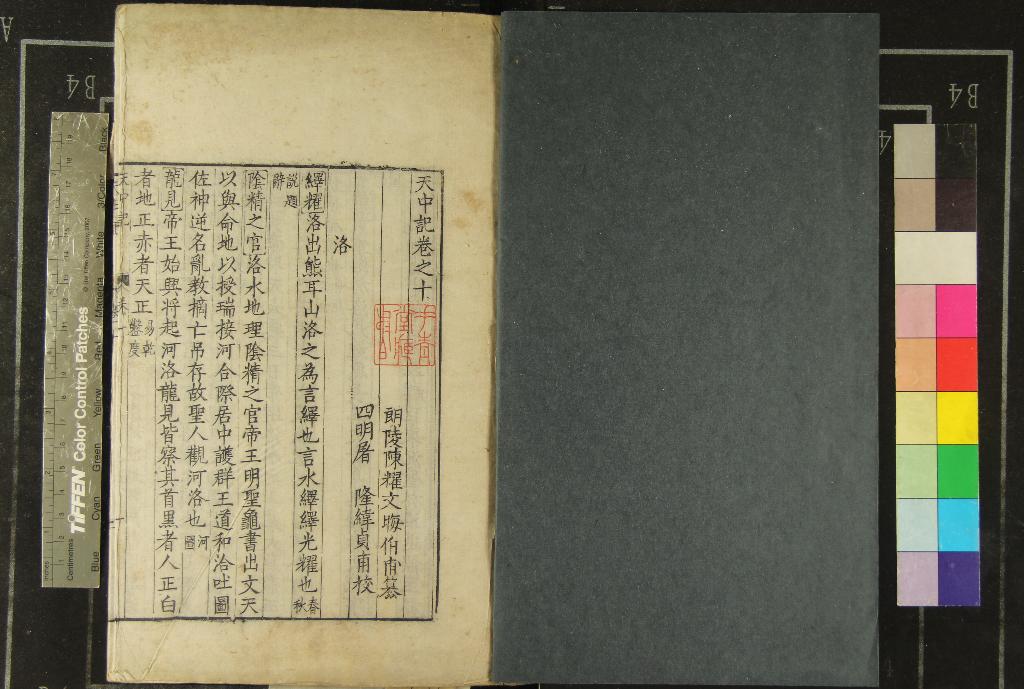 天中記卷之十
朗陵陳耀文晦伯甫纂
四明屠 隆緯貞甫校
洛
繹耀洛出熊耳山洛之為言繹也言水繹繹光耀也春秋
說題辭
陰精之官洛水地理陰精之官帝王明聖龜書出文天
以與命地以授瑞接河合際居中護群王道和洽吐圖
佐神逆名亂教摘亡吊存故聖人觀河洛也河圖
龍見帝王始興將起河洛龍見皆察其首黑者人正白
者地正赤者天正易乾鑿度
天中記
TIFFEN Color Control Patches
© The Tiffen Company, 2007
Centimetres
Inches
Blue
Cyan
Green
Yellow
Red
Magenta
White
3/Color
Black
B4
B4
A